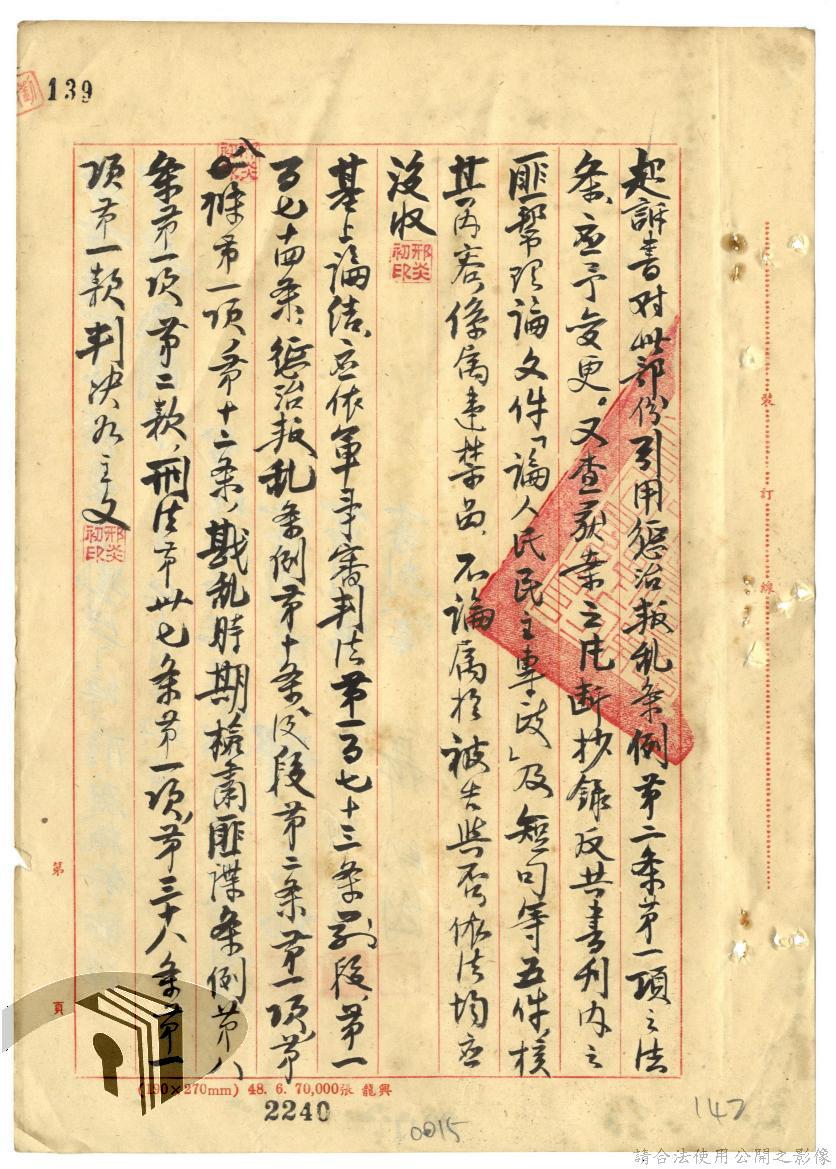 139
起訴書对此部份引用懲治叛乱条例第二条第一項之法
条、应予变更。又查获案之片断抄錄反共書刊内之
匪幫理論文件「論人民民主專政」及短句等五件、核
其內容係属违禁品、不論属於被告與否、依法均应
没收
邢炎初印
基上論结、应依軍事審判法第一百七十三条前段、第一
百七十四条、懲治叛乱条例第十条後段第二条第一項、第
八條第一項、第十二条、戡乱時期檢肅匪諜条例第八
条第一项第二款、刑法第卅七条第一項、第三十八条第一
项第一款判决如主文
邢炎初印
裝
訂
線
第
頁
(190×270mm) 48. 6. 70,000張 龍興
2240
0015
147
請合法使用公開之影像